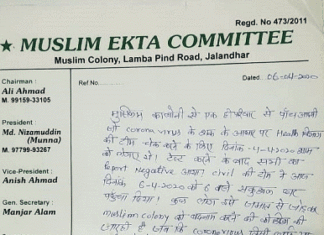 Regd. No 473/2011
★ MUSLIM EKTA COMMITTEE
Muslim Colony, Lamba Pind Road, Jalandhar
Chairman :
Ali Ahmad
M. 99159-33105
President :
Md. Nizamuddin
(Munna)
M. 97799-83267
Vice-President
Anish Ahmad
Gen. Secretary :
Manjar Alam
Ref No.
Dated : 06-04-2020
मुस्लिम कालोनी से एक परिवार से पाँच
जी corona virus के शक के आधार पर Health विभाग
की टीम चेक करने के लिए दिनांक -4-4-2020 शाम
को लेगए थे। टेस्ट करने के बाद सभी का
Report Negative आया। civil की टीम ने आज
दिनांक 6-4-2020 को 6 बजे सकुशल घर
पहुंचा दिया। कुछ लोग
muslim colony को बदनाम करने की कोशिश की
जा रही है जब कि coronavirus